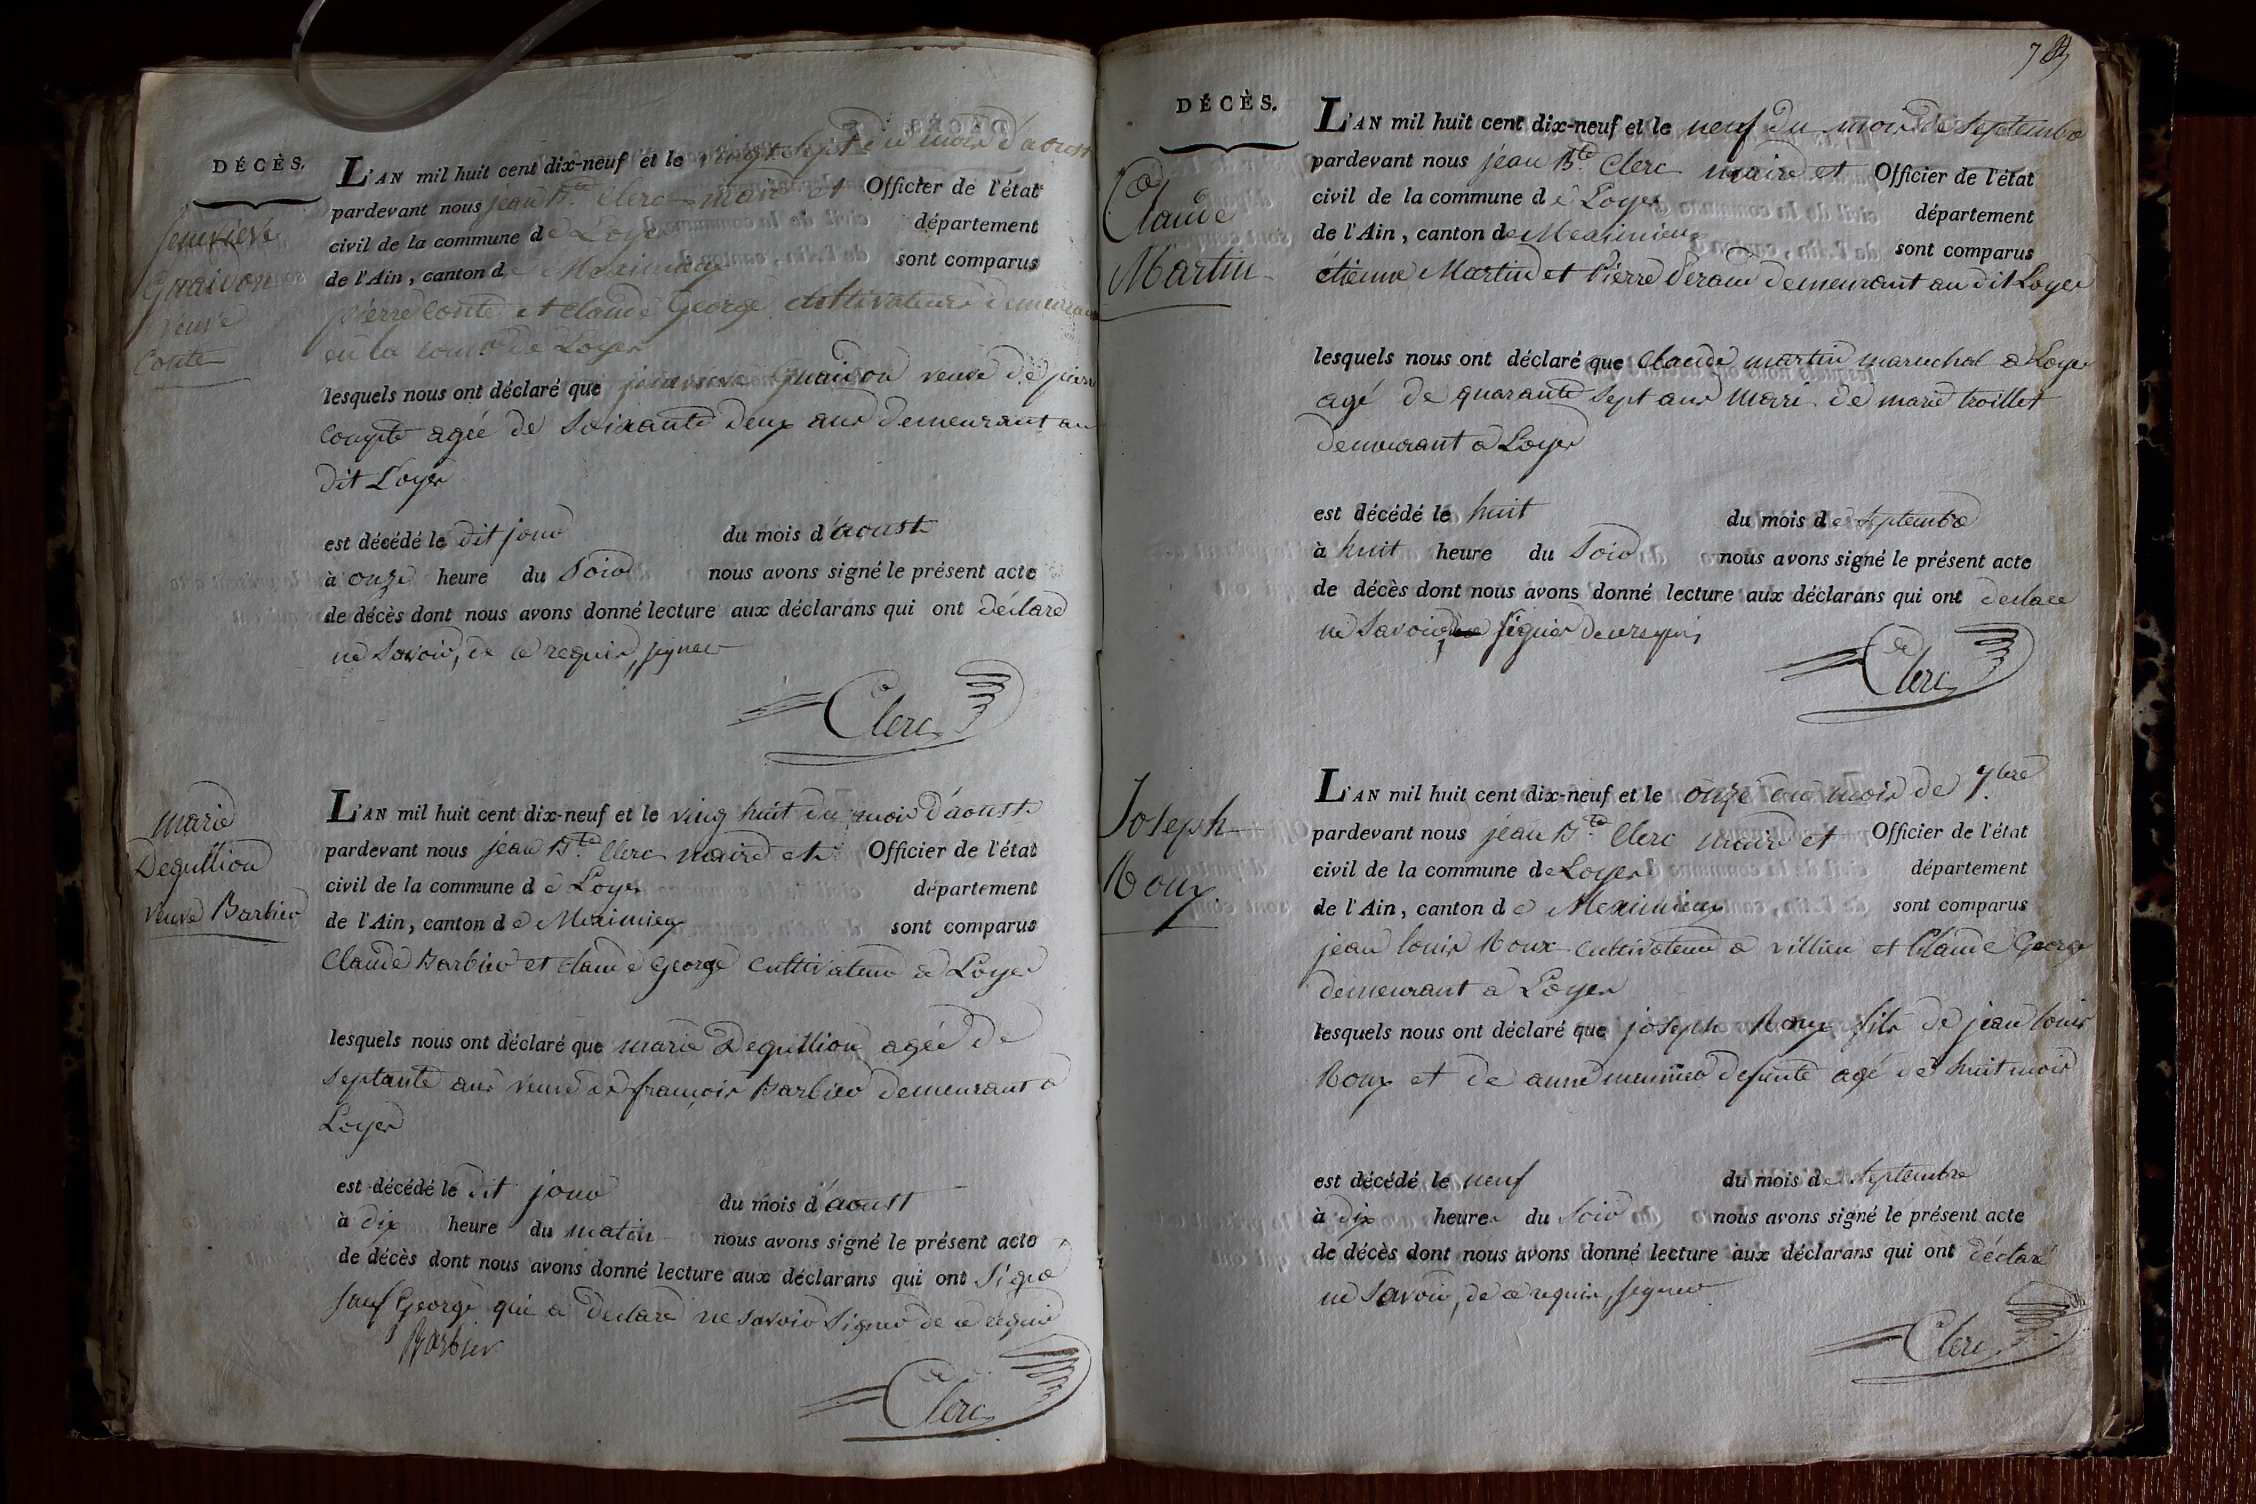 DÉCÈS.
Genevieve
Guaivon
veuve
Conte
L'AN mil huit cent dix-neuf et le vingt sept du mois d'aoust
pardevant nous jean Bte Clerc maire et Officier de l'état
civil de la commune de Loyes département
de l'Ain, canton de Meximieux sont comparus
pierre Conte et claude George cultivateurs demeurant
en la comne de Loyes
lesquels nous ont déclaré que jenevieve Guaivon veuve de pierre
Compte agée de Soixante deux ans demeurant au
dit Loyes
est décédé le dit jour du mois d'aoust
à onze heure du Soir nous avons signé le présent acte
de décès dont nous avons donné lecture aux déclarans qui ont déclaré
ne Savoir, de ce requis, signer
Clerc
marie
Deguillion
veuve Barbier
L'AN mil huit cent dix-neuf et le ving huit du mois d'aoust
pardevant nous jean Bte Clerc maire et Officier de l'état
civil de la commune de Loyes département
de l'Ain, canton de Meximieux sont comparus
Claude Barbier et claude George cultivateur a Loyes
lesquels nous ont déclaré que marie Deguillion agée de
septante ans veuve de françois Barbier demeurant a
Loyes
est décédé le dit jour du mois d'aoust
à dix heure du matin nous avons signé le présent acte
de décès dont nous avons donné lecture aux déclarans qui ont Signé
sauf George qui a declaré ne savoir signer de ce requis
Barbier
Clerc
78
DÉCÈS.
Claude
Martin
L'AN mil huit cent dix-neuf et le neuf du mois de Septembre
pardevant nous jean Bte Clerc maire et Officier de l'état
civil de la commune de Loyes département
de l'Ain, canton de Meximieux sont comparus
étienne Martin et Pierre demeurant au dit Loyes
lesquels nous ont déclaré que Claude martin marechal a Loyes
agé de quarante Sept ans Marié de marie troillet
demeurant a Loyes
est décédé le huit du mois de septembre
à huit heure du Soir nous avons signé le présent acte
de décès dont nous avons donné lecture aux déclarans qui ont declaré
ne Savoir signer de ce requis
Clerc
Joseph
Roux
L'AN mil huit cent dix-neuf et le onze du mois de 7bre
pardevant nous jean Bte Clerc maire et Officier de l'état
civil de la commune de Loyes département
de l'Ain, canton de Meximieux sont comparus
jean louis Roux cultivateur a villieu et Claude George
demeurant a Loyes
lesquels nous ont déclaré que joseph Roux fils de jean louis
Roux et de anne meunier defunte agé de huit mois
est décédé le neuf du mois de septembre
à dix heures du Soir nous avons signé le présent acte
de décès dont nous avons donné lecture aux déclarans qui ont déclaré
ne Savoir, de ce requis, signer
Clerc